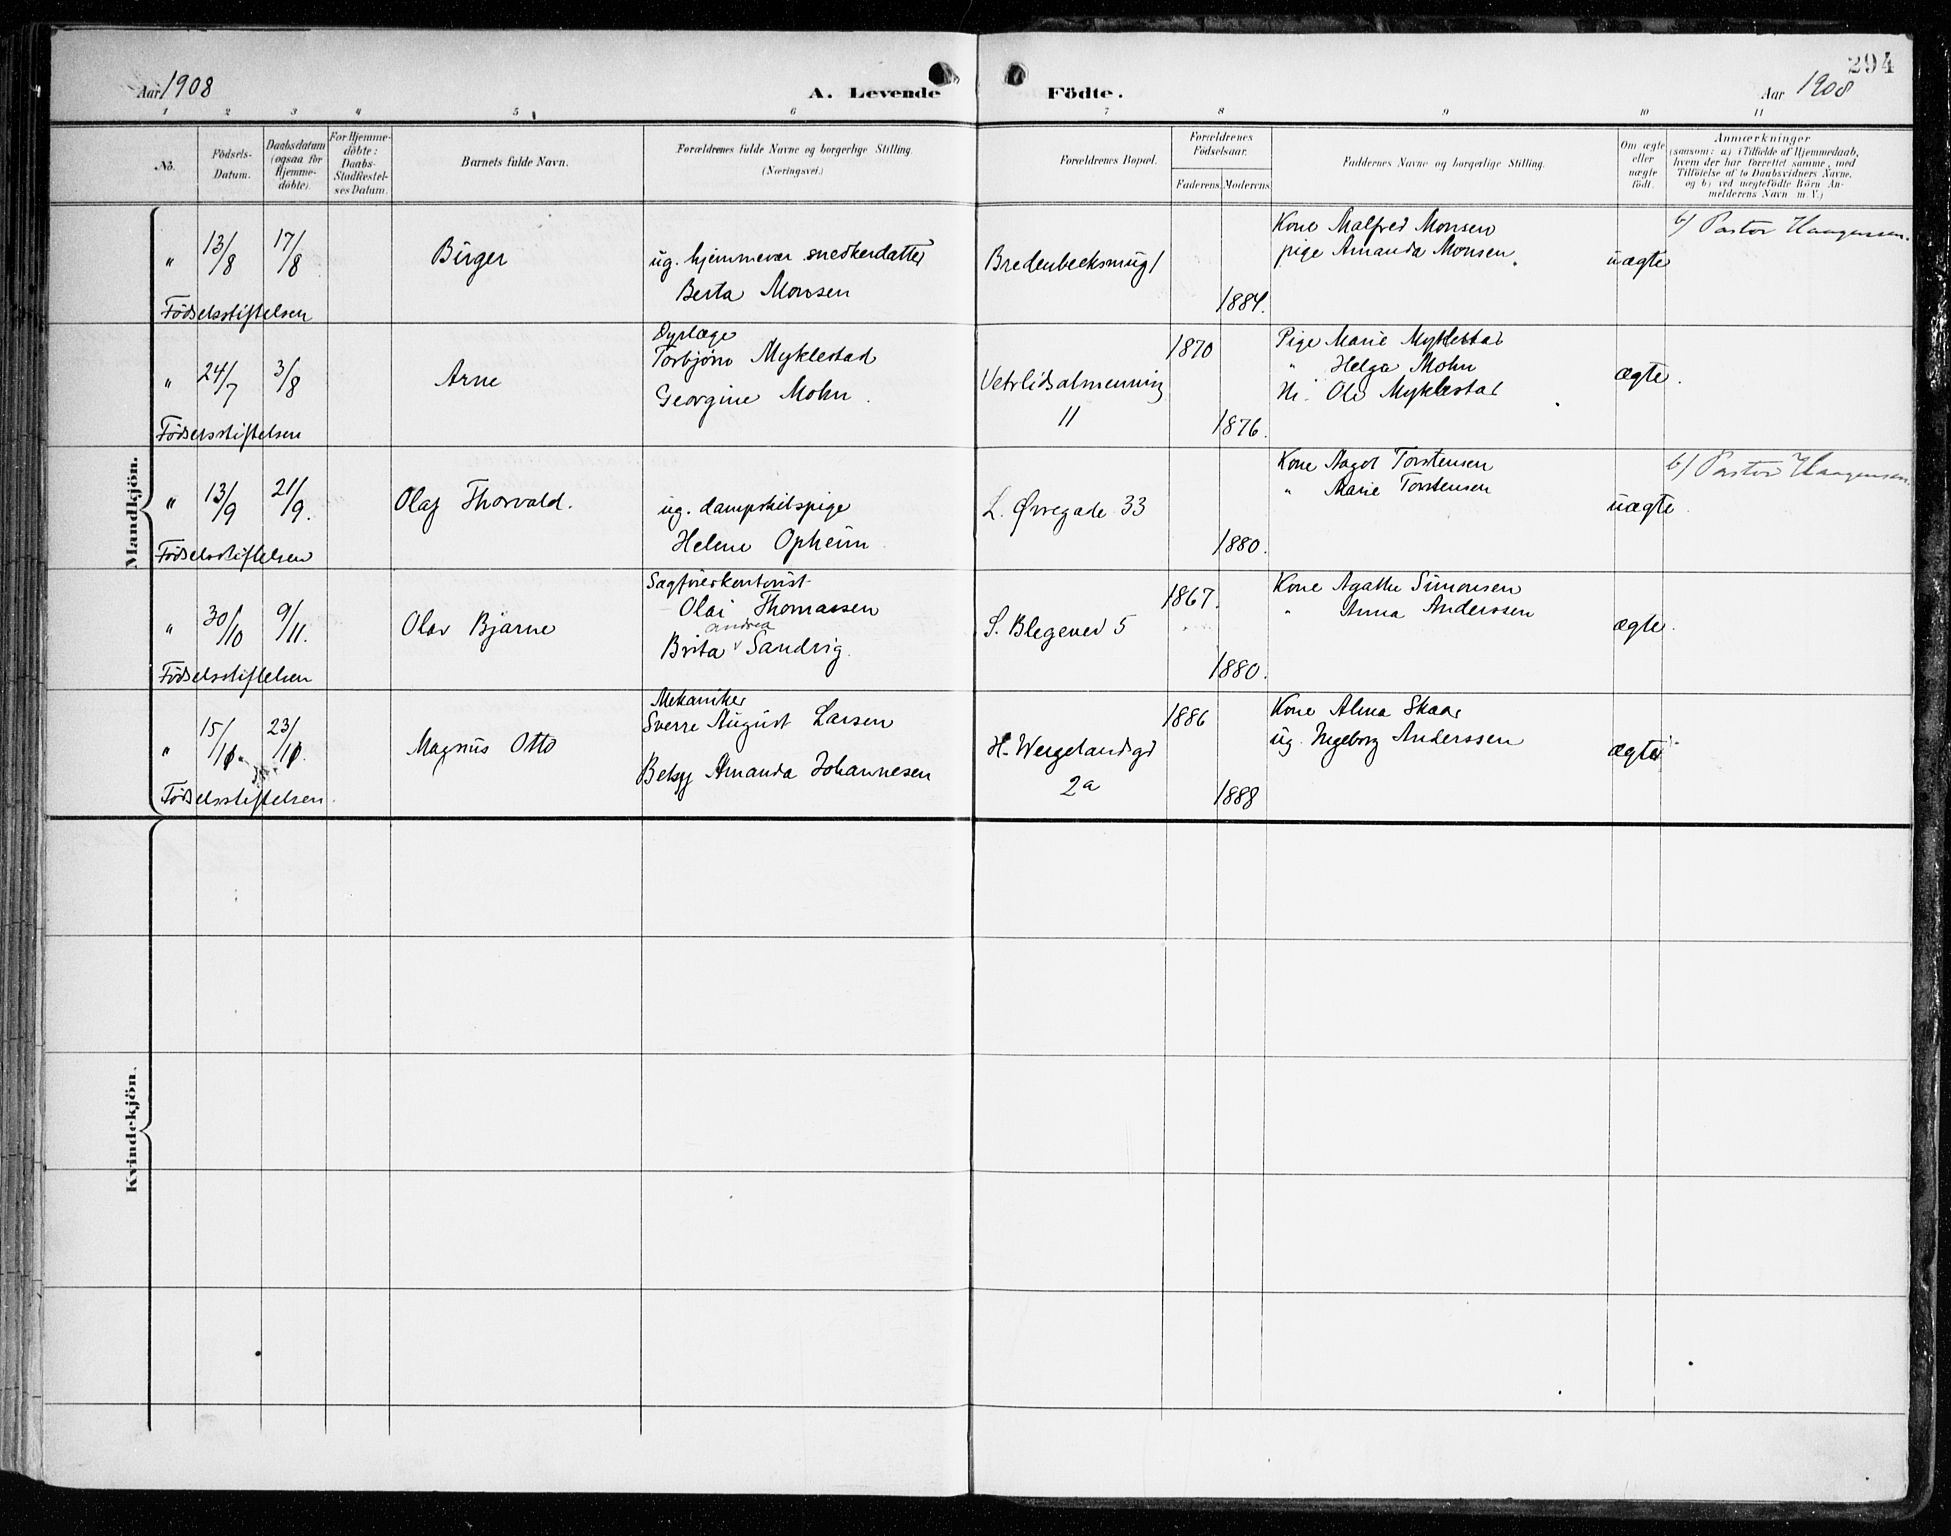 294
Aar 1908
A. Levende Födte.
Aar 1908
1 2 3 4 5 6 7 8 9 10 11
No.
Födsels-Datum.
Daabsdatum (ogsaa for Hjemmedöbte).
For Hjemmedöbte: Daabs-Stadfæstelses Datum.
Barnets fulde Navn.
Forældrenes fulde Navne og borgerlige Stilling.
(Næringsvei.)
Forældrenes Bopæl.
Forældrenes Födselsaar.
Faderens. Moderens.
Faddernes Navne og borgerlige Stilling.
Om ægte eller uægte födt.
Anmærkninger
(saasom: a) i Tilfælde af Hjemmedaab,
hvem der har forrettet samme, med
Tilföielse af to Daabsvidners Navne,
og b) ved uegtefödte Börn An-
melderens Navn m. V.)
Mandkjön.
" 13/8 17/8 Birger
Födselsstiftelsen
ug. hjemmevær. snedkerdatter
Berta Monsen
Bredenbecksmug 1
1884.
Kone Malfred Monsen
pige Amanda Monsen.
uægte
b/ Pastor Haagensen.
" 24/7 3/8 Arne
Födselsstiftelsen
Dyrlæge
Torbjörn Myklestad
Georgine Mohn.
Vetrlidsalmenning
11
1870
1876.
Pige Marie Myklestad
" Helga Mohn
Hr. Ole Myklestad
ægte.
" 13/9 21/9. Olaf Thorvald.
Födselsstiftelsen
ug. dampskibspige
Helene Opheim
L. Øvregade 33
1880.
Kone Aagot Torstensen
" Marie Torstensen
uægte
b/ Pastor Haagensen.
" 30/10 9/11. Olav Bjarne
Födselsstiftelsen
Sagförerkontorist
Olai Thomassen
andrea
Brita v Sandvig.
S. Blegevei 5
1867.
1880.
Kone Agathe Simonsen
" Anna Anderssen
ægte.
" 15/10 23/10. Magnus Otto
Födselsstiftelsen.
Mekaniker
Sverre August Larsen
Betsy Amanda Johannesen
H. Wergelandsgd
2a
1886
1888
Kone Alma Skaar
ug. Ingeborg Anderssen
ægte
Kvindekjön.